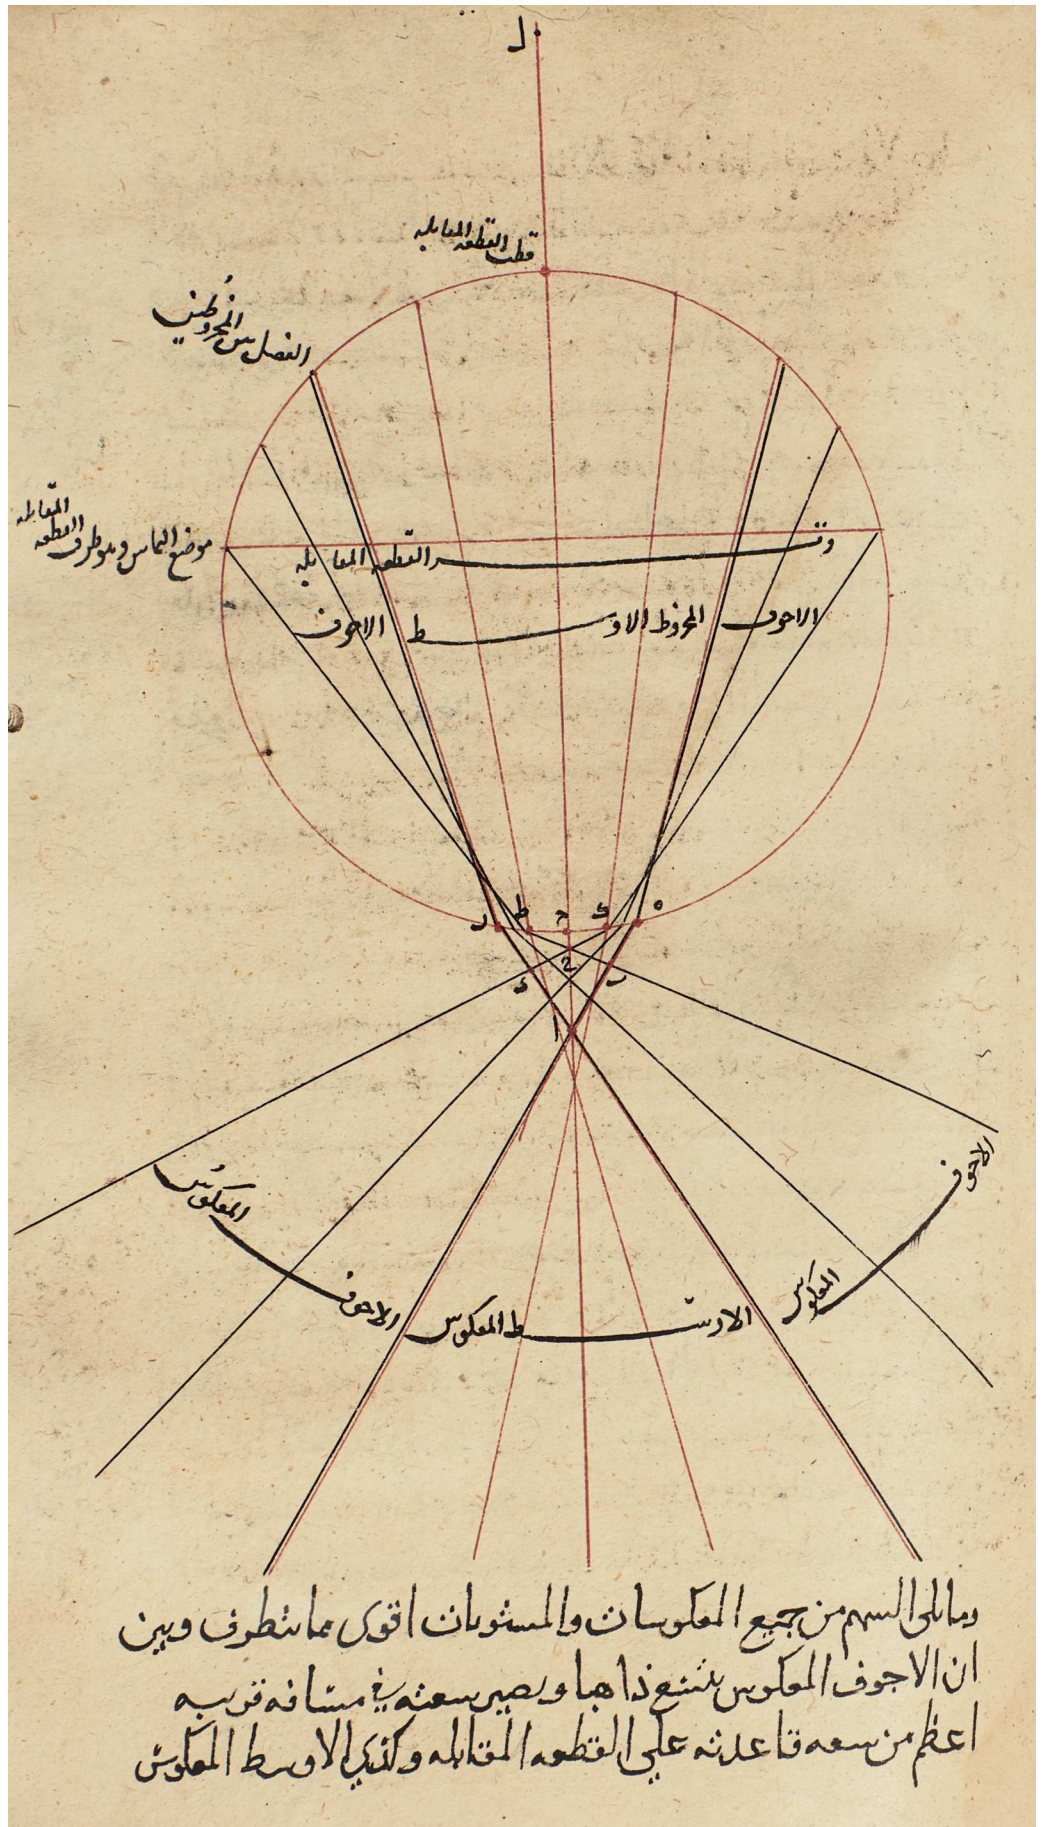 ل
قطب القطعه المقابله
الفصل بين المخروطين
موضع التماس وهو طرف القطعه المقابله
وتر القطعه المقابله
الاجوف
المخروط الاوسط
الاجوف
ه
ى
ح
ط
ر
ب
ا
الاجوف
المعكوس
الاوسط المعكوس
الاجوف
المعكوس
وما يلى السهم من جميع المعكوسات والمستويات اقوى مما يتطرف وبين
ان الاجوف المعكوس يتسع ذاهبا ويصير سعته في مسافه قريبه
اعظم من سعه قاعدته على القطعه المقابله وكذلك الاوسط المعكوس